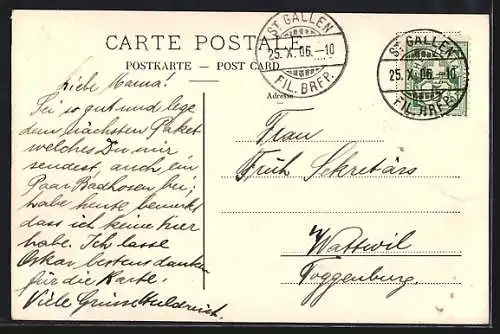 CARTE POSTALE
POSTKARTE — POST CARD
ST GALLEN
25. X. 06. –10
FIL. BRFP.
ST GALLEN
25. X. 06. –10
FIL. BRFP.
Adresse
Liebe Mama!
Sei so gut und lege
dem nächsten Paket
welches Du mir
sendest, auch ein
Paar Badhosen bei;
habe heute bemerkt
dass ich keine hier
habe. Ich lasse
Oskar bestens danken
für die Karte.
Viele Grüsse Huldreich.
Frau
Früh Sekretärs
Wattwil
Toggenburg.